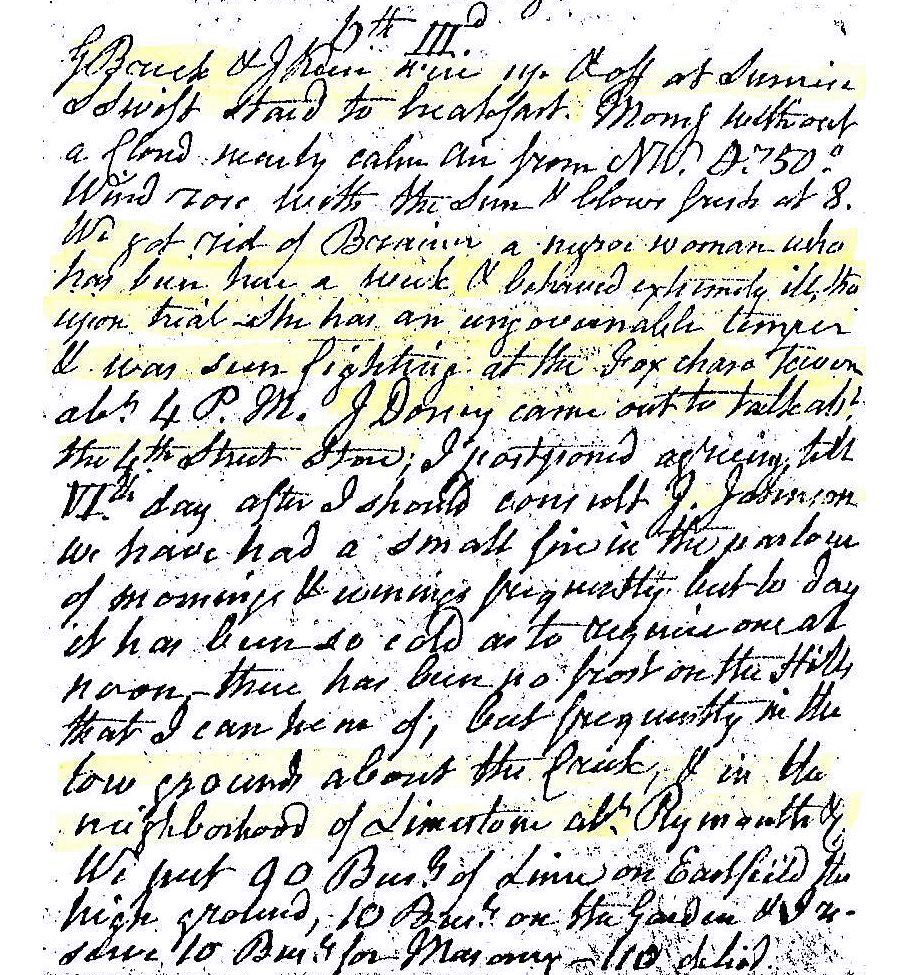 17th III.d
G Bruck & J Keen were up & off at Sunrise
S Swift staid to breakfast. Morng without
a Cloud nearly calm Air from NW. 50°
Wind rose with the Sun & blows fresh at 8.
We got rid of a negroe woman who
has been here a week & behaved extremely ill, tho
upon trial She has an ungovernable temper
& was seen fighting at the Fox chase Tavern
abt 4 P. M. J Dorsey came out to talk abt
the 4th Street Store; I postponed agreeing till
VI.th day after I should consult J. Johnson
we have had a small fire in the parlour
of mornings & evenings frequently but to day
it has been so cold as to require one at
noon, there has been no frost on the Hills
that I can hear of, but frequently in the
low grounds about the Creek, & in the
neighborhood of Limestone abt Plymouth &
We put 90 Bus.s of Lime on Eastfield the
high ground, 10 Bus.s on the Garden & I re-
serve 10 Bus.s for Masonry - 110 delivd.